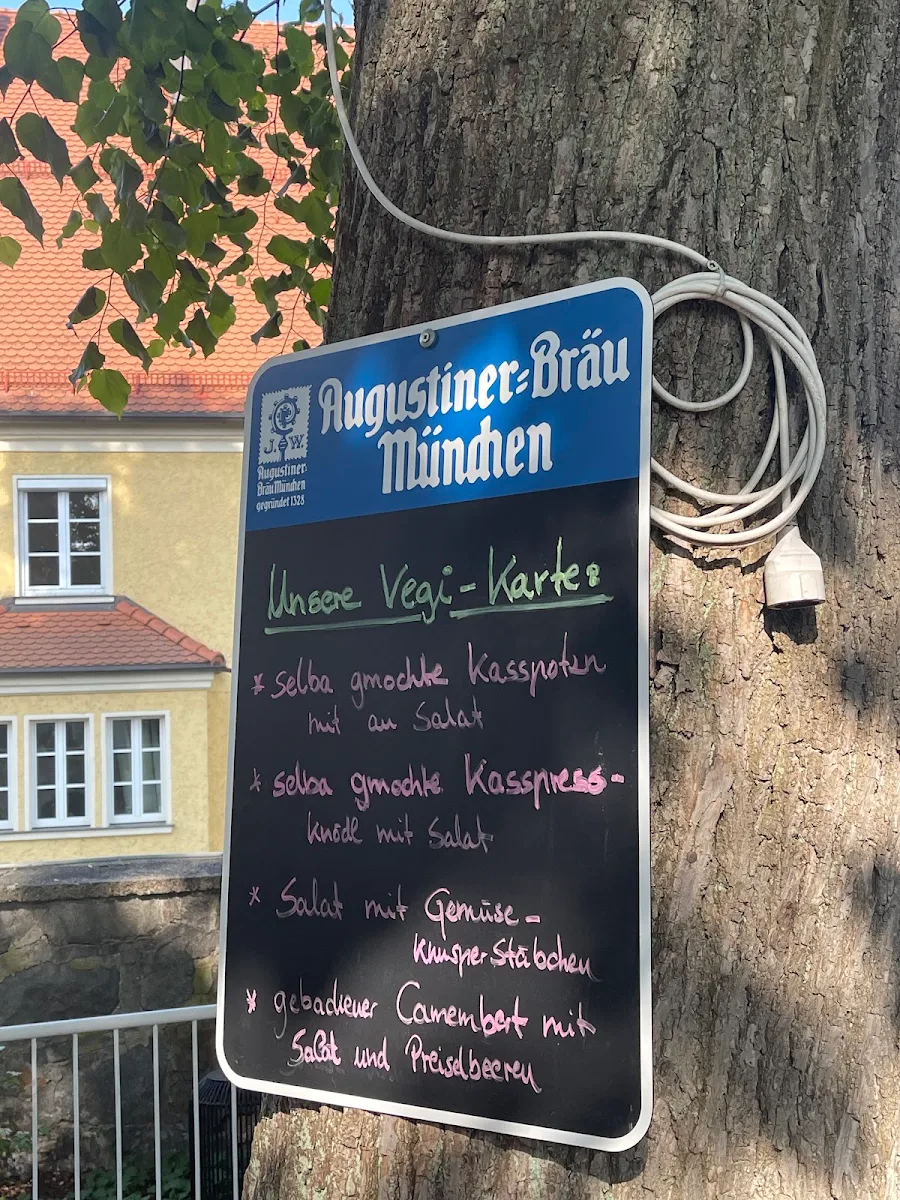 Augustiner-Bräu
München
J. W.
Augustiner-
Bräu München
gegründet 1328
Unsere Vegi-Karte:
* selba gmochte Kasspotzn
mit an Salat
* selba gmochte Kasspress-
knödl mit Salat
* Salat mit Gemüse-
Knusper-Stäbchen
* gebackener Camembert mit
Salat und Preiselbeeren